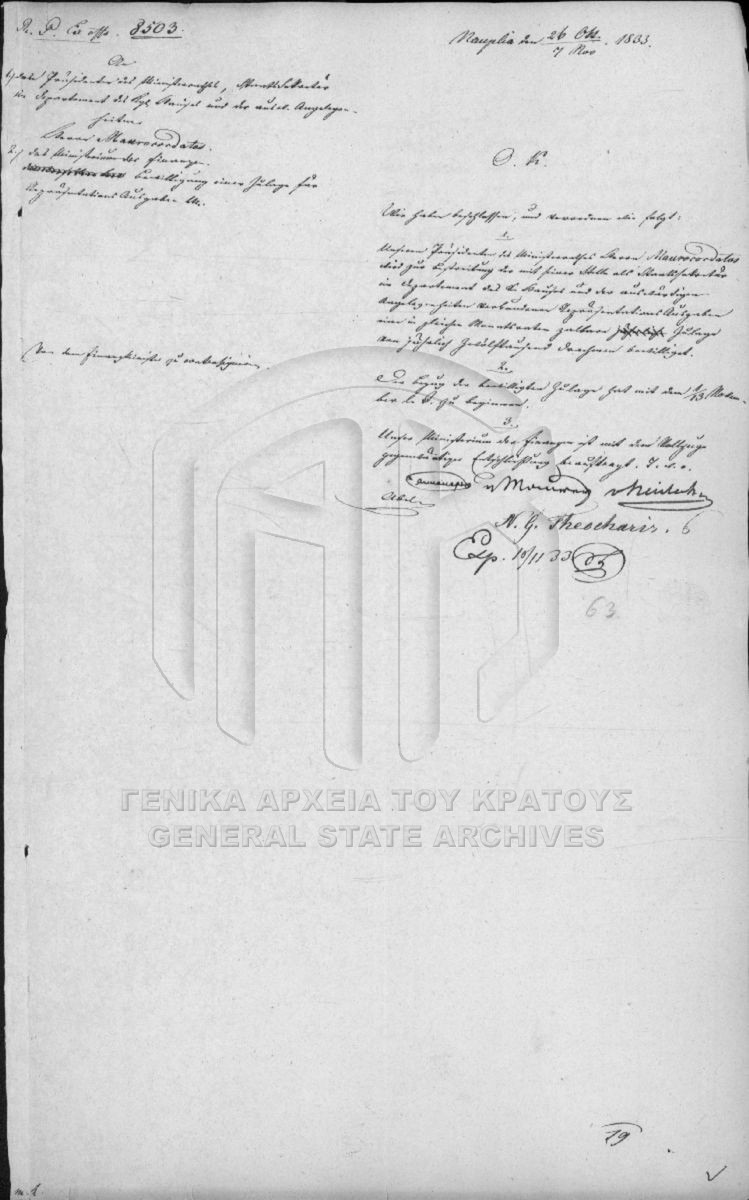 R. P. Ex offo. 8503.
Nauplia den 26 Okt. / 7 Nov. 1833.
An
1.) den Präsidenten des Ministerrathes, Staatssekretär
im Departement des Kgl. Hauses und der ausw. Angelegen-
heiten
Herrn Maurocordatos.
2.) das Ministerium der Finanzen.
Bewilligung einer Zulage für
Repräsentations Ausgaben
Von dem Finanzminister zu contrasigniren.
O. K.
Wir haben beschlossen, und verordnen wie folgt:
1.
Unserm Präsidenten des Ministerrathes Herrn Maurocordatos
wird zur Bestreitung der mit seiner Stelle als Staatssekretär
im Departement des K. Hauses und der auswärtigen
Angelegenheiten verbundenen Repräsentations Ausgaben
eine in gleichen Monatsraten zahlbare jährliche Zulage
von jährlich Zwölftausend Drachmen bewilligt.
2.
Der Bezug der bewilligten Zulage hat mit dem 1/13 Novem-
ber l. J. zu beginnen.
3.
Unser Ministerium der Finanzen ist mit dem Vollzuge
gegenwärtiger Entschließung beauftragt.
Armansperg v Maurer v Heideck
Abel
N. G. Theocharis. 6
Exp. 10/11 33
63
ΓΕΝΙΚΑ ΑΡΧΕΙΑ ΤΟΥ ΚΡΑΤΟΥΣ
GENERAL STATE ARCHIVES
19
m. l.